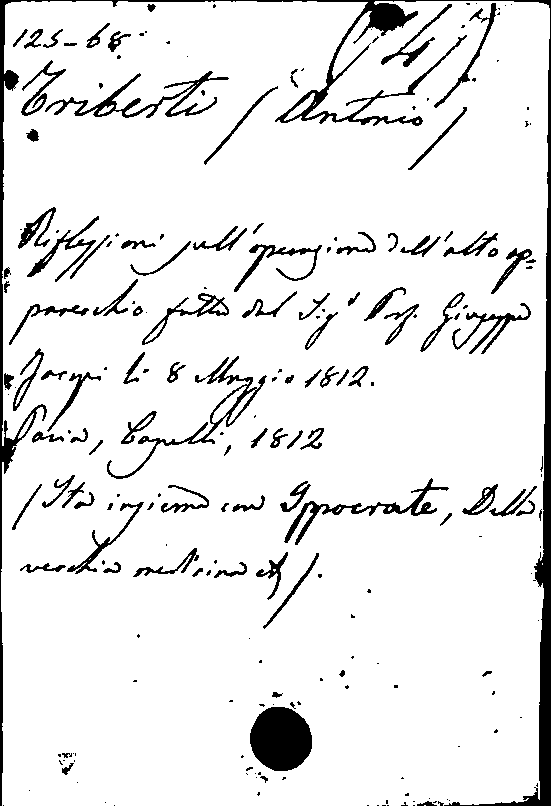 125-68 (4)
Triberti (Antonio)
Riflessioni sull'operazione dell'alto ap=
parecchio fatta dal Sig.r Prof. Giuseppe
Jacopi li 8 Maggio 1812.
Pavia, Capelli, 1812
(Sta insieme con Ippocrate, Della
vecchia medicina etc).